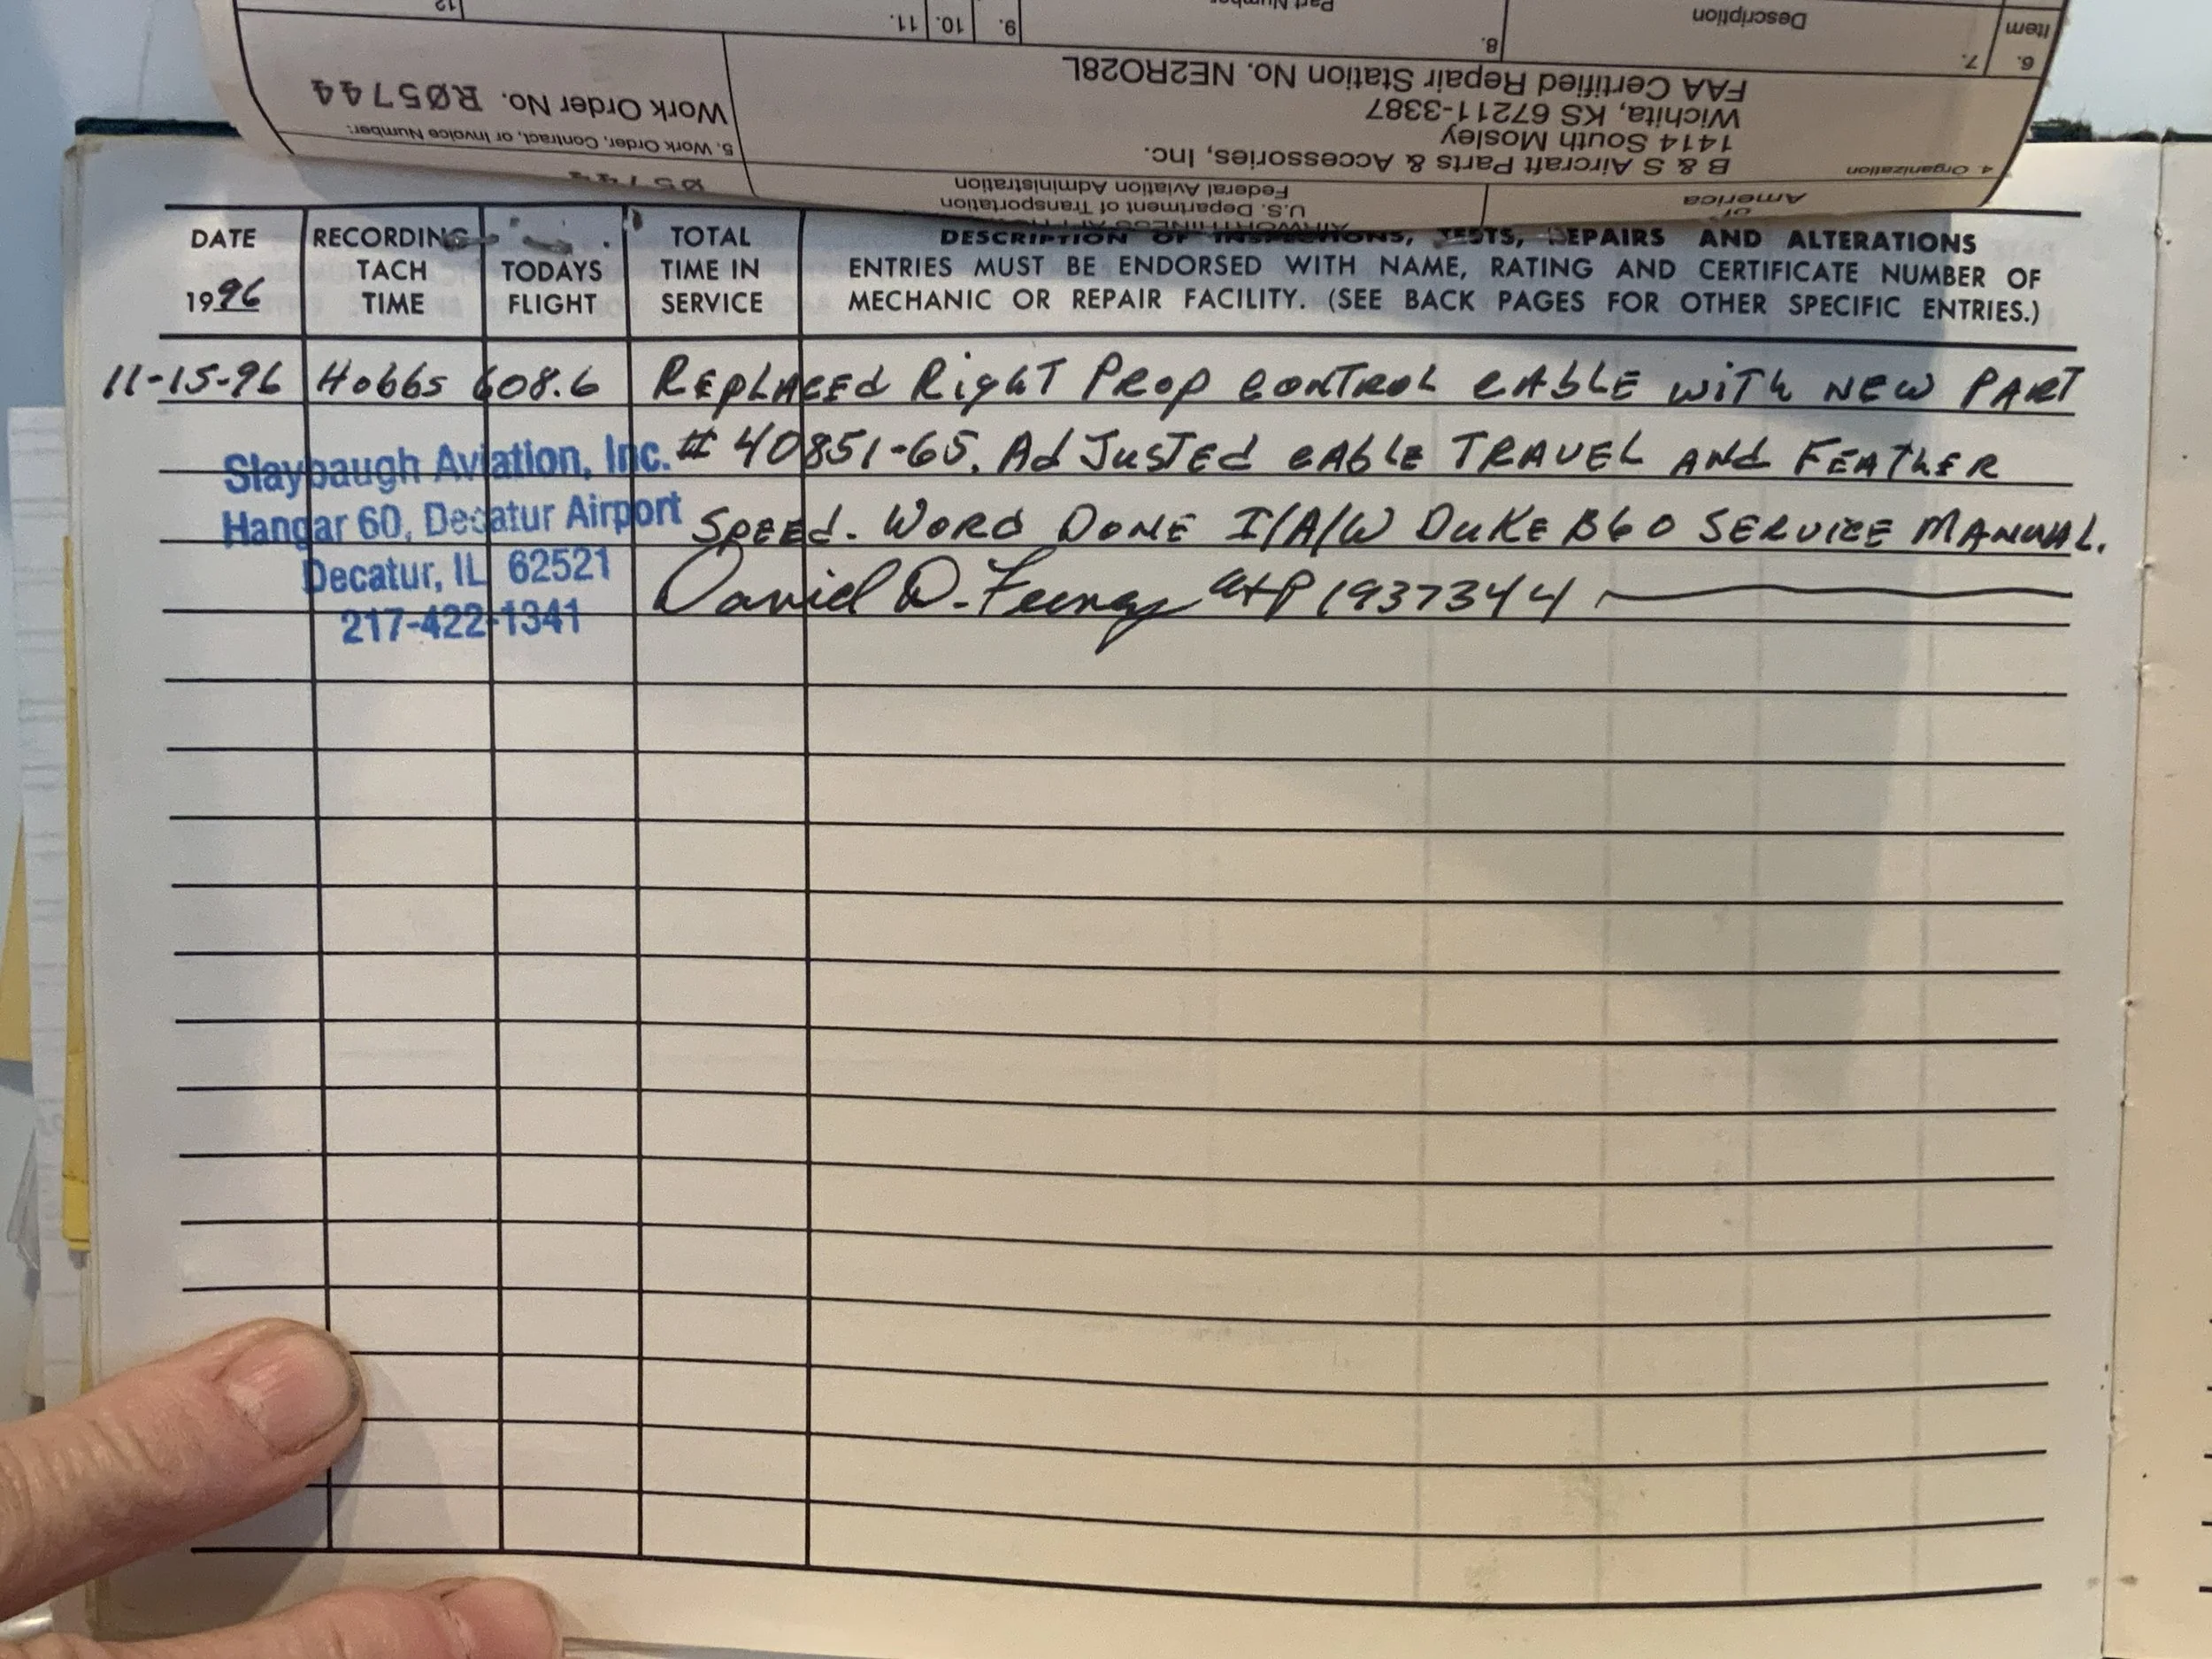 12
11.
10.
9.
Part Number
8.
Description
7.
Item
6.
Work Order No. RØ5744
5. Work Order, Contract, or Invoice Number:
FAA Certified Repair Station No. NE2RO28L
Wichita, KS 67211-3387
1414 South Mosley
B & S Aircraft Parts & Accessories, Inc.
4. Organization
Ø5744
Federal Aviation Administration
U.S. Department of Transportation
of
America
DATE
1996
RECORDING
TACH
TIME
TODAYS
FLIGHT
TOTAL
TIME IN
SERVICE
DESCRIPTION OF INSPECTIONS, TESTS, REPAIRS AND ALTERATIONS
ENTRIES MUST BE ENDORSED WITH NAME, RATING AND CERTIFICATE NUMBER OF
MECHANIC OR REPAIR FACILITY. (SEE BACK PAGES FOR OTHER SPECIFIC ENTRIES.)
11-15-96 Hobbs 608.6 Replaced Right Prop control cable with new Part
# 40851-65. Adjusted cable travel and Feather
Speed. Word Done I/A/W Duke B60 Service Manual.
David D. Feeney A+P 1937344
Slaybaugh Aviation, Inc.
Hangar 60, Decatur Airport
Decatur, IL 62521
217-422-1341